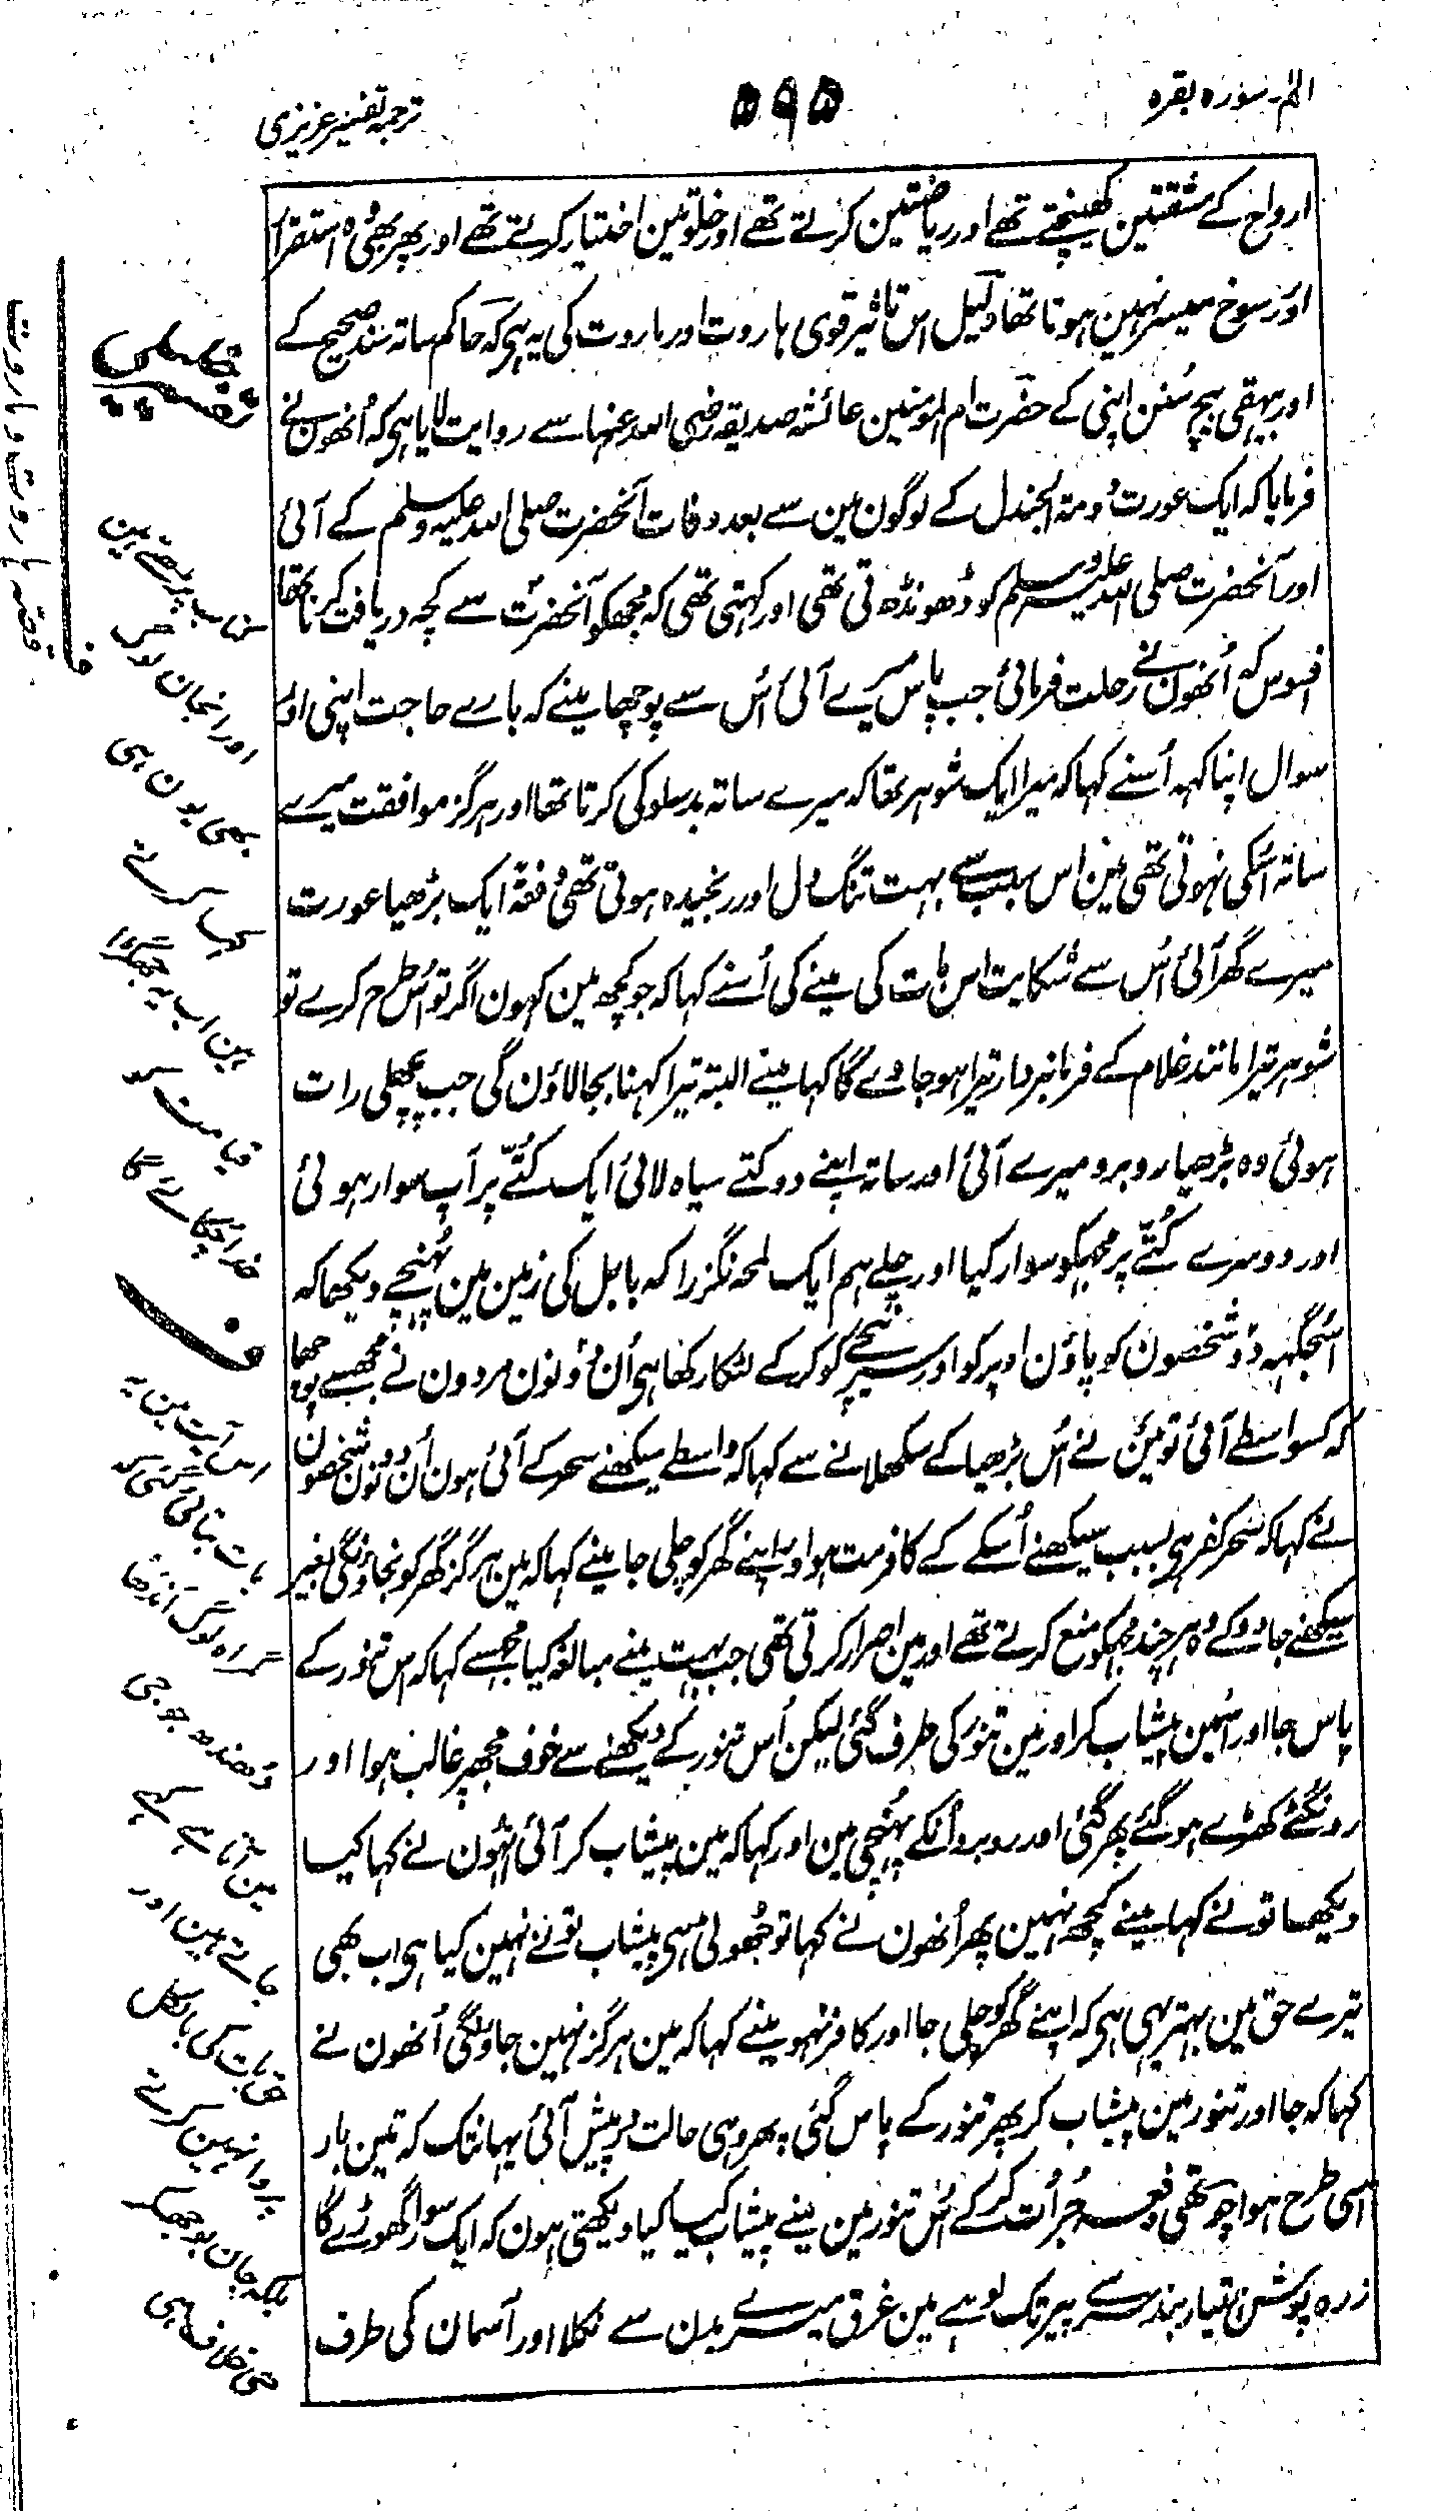 الم۔ سورہ بقرہ
۵۹۵
ترجمہ تفسیر عزیزی
ارواح کے مشقتین کھینچتے تھے اور ریاضتین کرتے تھے اور خلوتین اختیار کرتے تھے اور پھر بھی وہ استقرار
اور رسوخ میسر نہین ہوتا تھا دلیل اس تاثیر قوی ہاروت اور ماروت کی یہ ہی کہ حاکم ساتہ سند صحیح کے
اور بیہقی بیچ سُنن اپنی کے حضرت ام المومنین عائشہ صدیقہ رضی اللہ عنہا سے روایت لایا ہی کہ اُنھون نے
فرمایا کہ ایک عورت دُومۃ الجندل کے لوگون مین سے بعد وفات آنحضرت صلی اللہ علیہ وسلم کے آئی
اور آنحضرت صلی اللہ علیہ وسلم کو ڈھونڈھتی تھی اور کہتی تھی کہ مجھکو آنحضرت سے کچہ دریافت کرنا تھا
افسوس کہ اُنھون نے رحلت فرمائی جب پاس میرے آئی اُس سے پوچھا مینے کہ بارے حاجت اپنی اور
سوال اپنا کہہ اُسنے کہا کہ میرا ایک شوہر تھا کہ میرے ساتہ بدسلوکی کرتا تھا اور ہرگز موافقت میرے
ساتہ اسکی نہوتی تھی مین اس سبب سے بہت تنگ دل اور رنجیدہ ہوتی تھی دفعۃً ایک بڑھیا عورت
میرے گھر آئی اُس سے شکایت اس بات کی مینے کی اُسنے کہا کہ جو کچھ مین کہون اگر تو اُس طرح کرے تو
شوہر تیرا مانند غلام کے فرمانبردار تیرا ہو جاوے گا کہا مینے البتہ تیرا کہنا بجا لاؤن گی جب پچھلی رات
ہوئی وہ بڑھیا روبرو میرے آئی اور ساتہ اپنے دو کتے سیاہ لائی ایک کُتّے پر آپ سوار ہوئی
اور دوسرے کُتّے پر مجہکو سوار کیا اور چلے ہم ایک لمحہ نگزرا کہ بابل کی زمین مین پہُنچے دیکھا کہ
اسجگہہ دو شخصون کو پاؤن اوپر کو اور سر نیچے کو کر کے لٹکا رکھا ہی اُن دونون مردون نے مجھسے پوچھا
کہ کسواسطے آئی تو مین نے اُس بڑھیا کے سکھلانے سے کہا کہ واسطے سیکھنے سحر کے آئی ہون اُن دونون شخصون
نے کہا کہ سحر کفر ہی بسبب سیکھنے اُسکے کے کافر مت ہو اور اپنے گھر کو چلی جا مینے کہا کہ مین ہرگز گھر کو نجاؤنگی بغیر
سیکھنے جادو کے وہ ہر چند مجہکو منع کرتے تھے اور مین اصرار کرتی تھی جب بہت مینے مبالغہ کیا مجہسے کہا کہ اس تنور کے
پاس جا اور اسمین پیشاب کر اور مین تنور کی طرف گئی لیکن اُس تنور کے دیکھنے سے خوف مجھپر غالب ہوا اور
رونگٹے کھڑے ہو گئے پھر گئی اور روبرو اُنکے پہُنچی مین اور کہا کہ مین پیشاب کر آئی اُنہون نے کہا کیا
دیکھا تو نے کہا مینے کچھ نہین پھر اُنھون نے کہا تو جھُوٹی ہی پیشاب تو نے نہین کیا ہی اب بھی
تیرے حق مین بہتر یہی ہی کہ اپنے گھر کو چلی جا اور کافر نہو مینے کہا کہ مین ہرگز نہین جاؤنگی اُنھون نے
کہا کہ جا اور تنور مین پیشاب کر پھر تنور کے پاس گئی پھر وہی حالت درپیش آئی یہانتک کہ تین بار
اسی طرح ہوا چوتھی دفعہ جُرأت کر کے اُس تنور مین مینے پیشاب کیا کیا دیکھتی ہون کہ ایک سوار گھوڑے کا
زرہ پوش ہتیار بند سر سے پیر تک لوہے مین غرق میرے بدن سے نکلا اور آسمان کی طرف
تفسیر
سب پڑھتے ہین
اور انجان لوگ
بھی یون ہی
کرتے
ہین اب یہ جھگڑا
قیامت
خدا چکاے گا
ف
اس آیت مین یہ
بات بتائی گئی
گمراہ لوگ اندھا
دھندھ جو جی
مین آتا ہے کہے
جاتے ہین اور
حق بات کی بالکل
پروا نہین کرتے
بلکہ جان بوجھکر
خلاف
قصہ ہاروت و ماروت